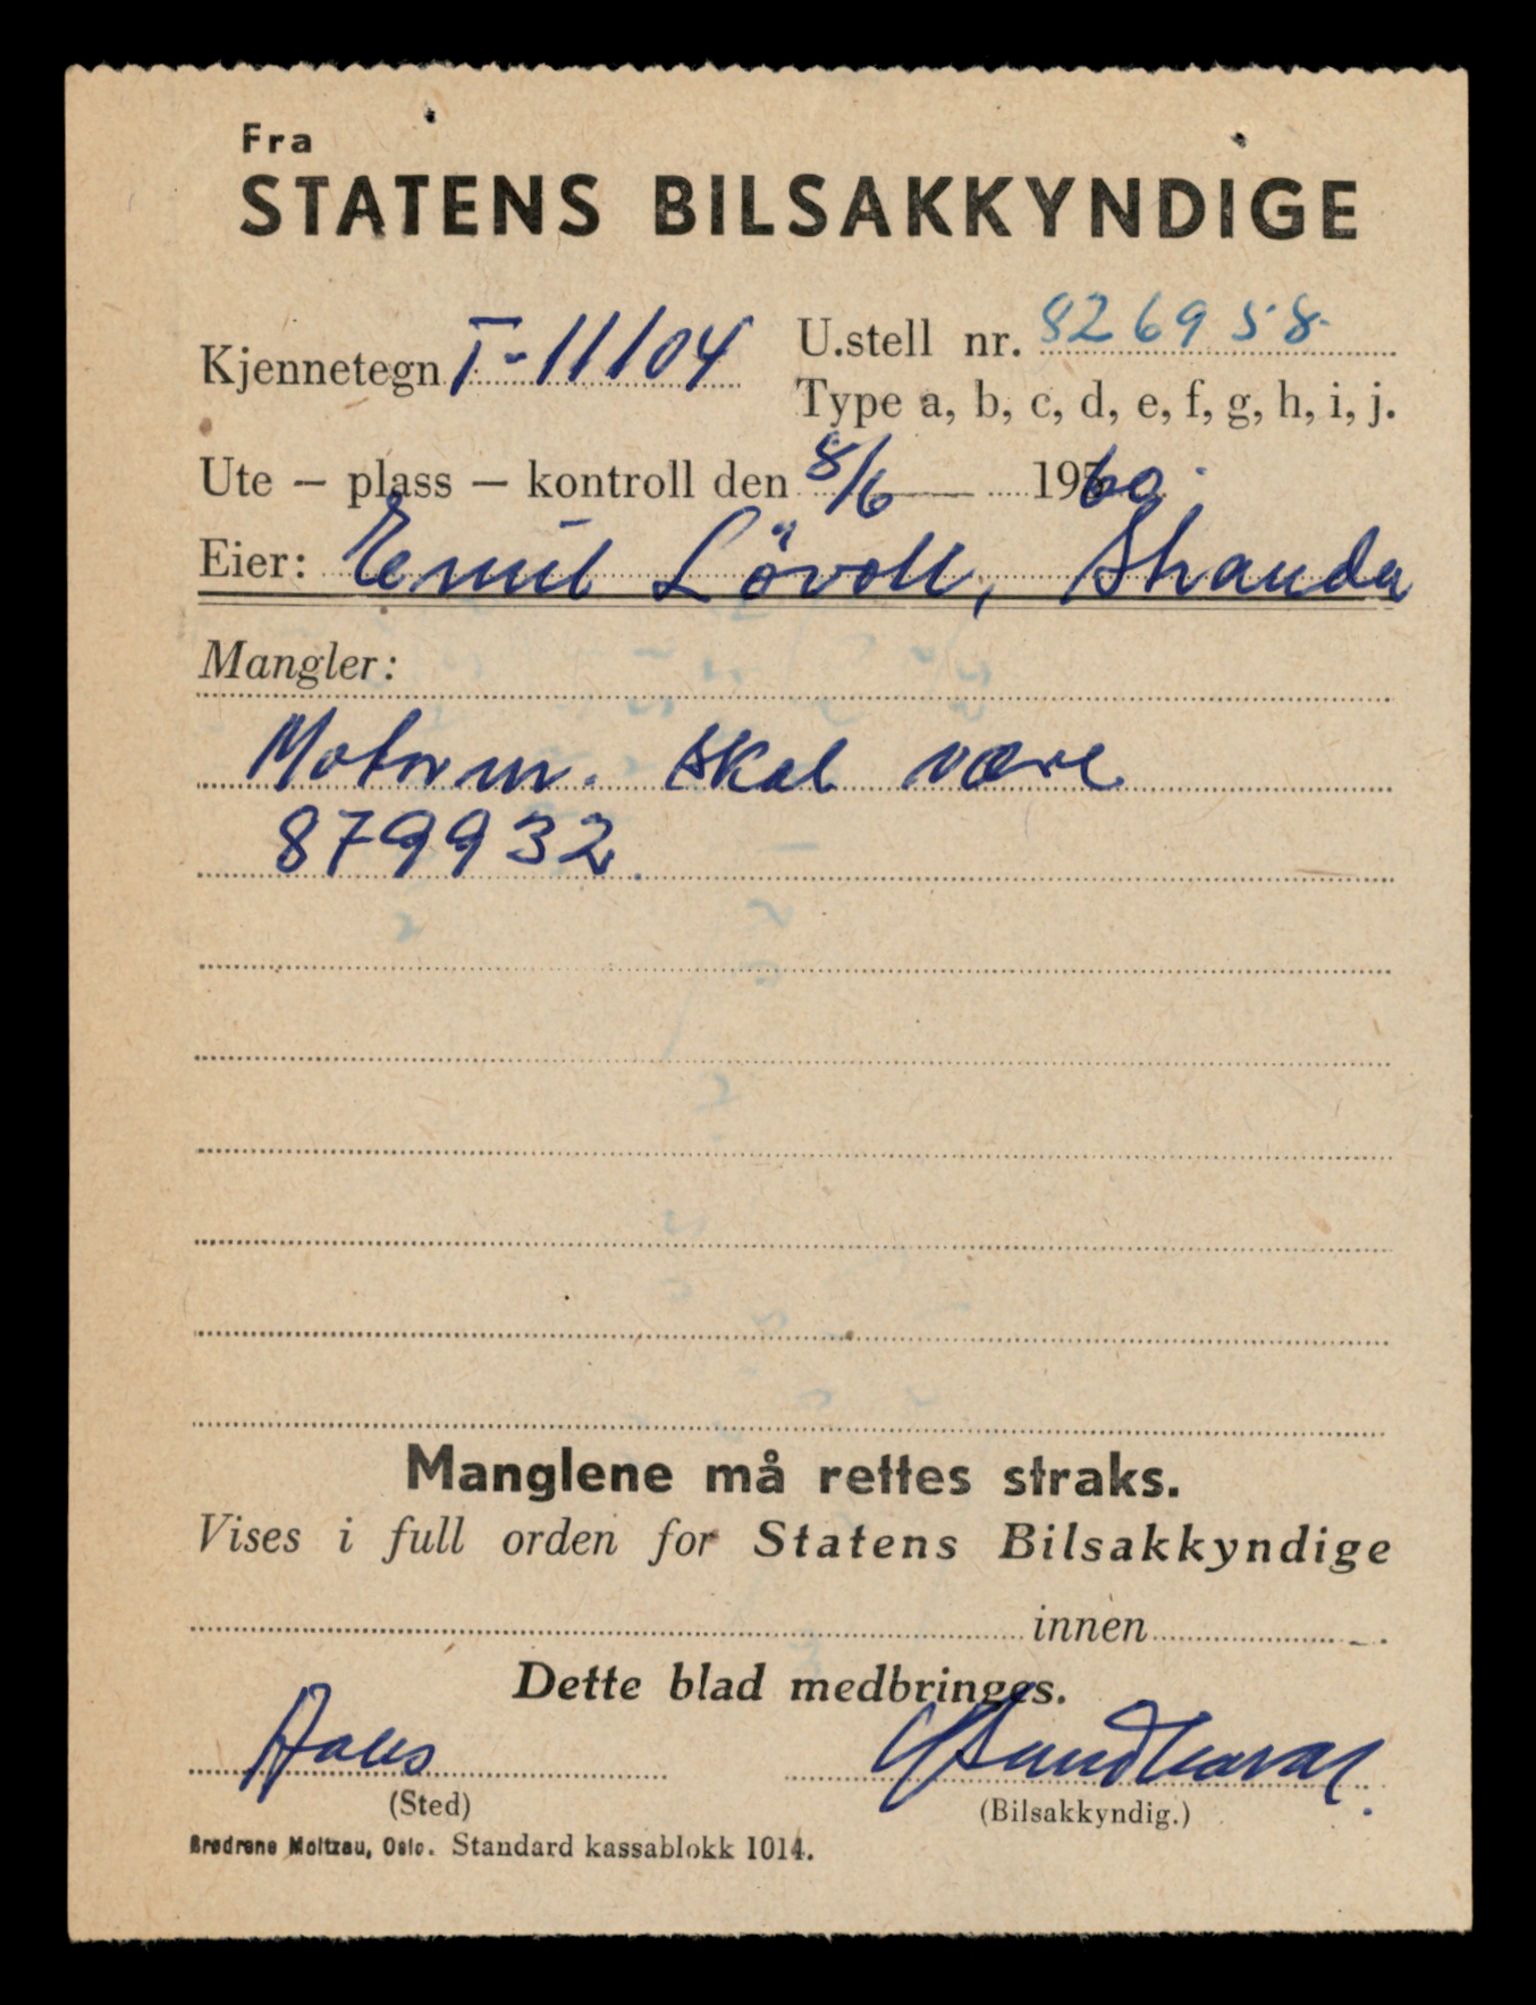 Fra
STATENS BILSAKKYNDIGE
Kjennetegn T-11104
U.stell nr. 826958
Type a, b, c, d, e, f, g, h, i, j.
Ute – plass – kontroll den 8/6 — 1960.
Eier: Emil Lövoll, Stranda
Mangler:
Motornr. skal være
879932.
Manglene må rettes straks.
Vises i full orden for Statens Bilsakkyndige
innen
Dette blad medbringes.
(Sted)
(Bilsakkyndig.)
Brødrene Moltzau, Oslo. Standard kassablokk 1014.